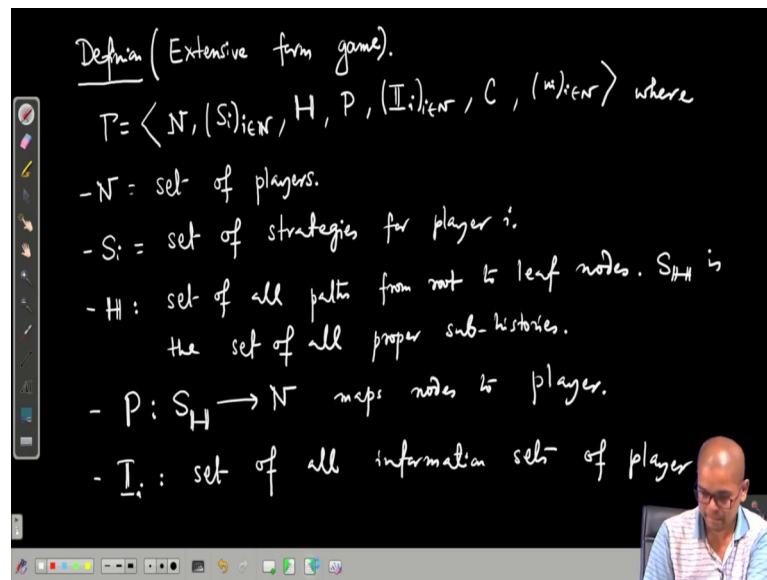 Definion (Extensive form game).
Γ = ⟨ N, (Si)i∈N, H, P, (𝕀i)i∈N, C, (ui)i∈N ⟩ where
- N = set of players.
- Si = set of strategies for player i.
- ℍ : set of all paths from root to leaf nodes. Sℍ is
the set of all proper sub-histories.
- P : Sℍ ⟶ N maps nodes to player.
- 𝕀i : set of all information sets of player